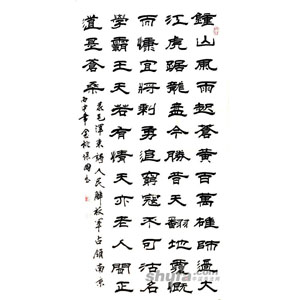 鍾山風雨起蒼黄百萬雄師過大
江虎踞龍盤今勝昔天翻地覆慨
而慷宜將剩勇追窮寇不可沽名
學霸王天若有情天亦老人間正
道是蒼桑
录毛澤東詩人民解放軍占領南京
shufa.com